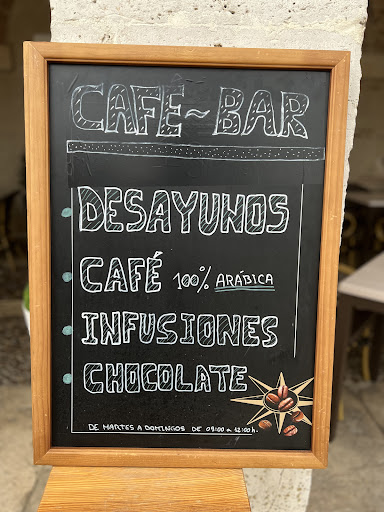 CAFE~BAR
DESAYUNOS
CAFÉ 100% ARÁBICA
INFUSIONES
CHOCOLATE
DE MARTES A DOMINGOS DE 09:00 a 12:00h.